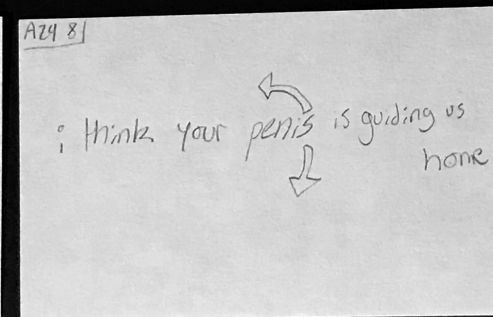 A24 81
i think your penis is guiding us
home